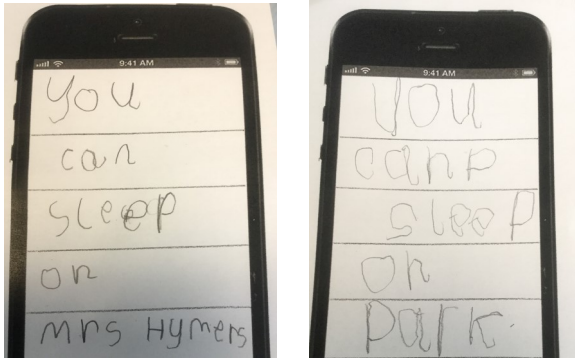 9:41 AM
you
can
sleep
on
mrs Hymers
9:41 AM
you
canp
sleep
on
park.